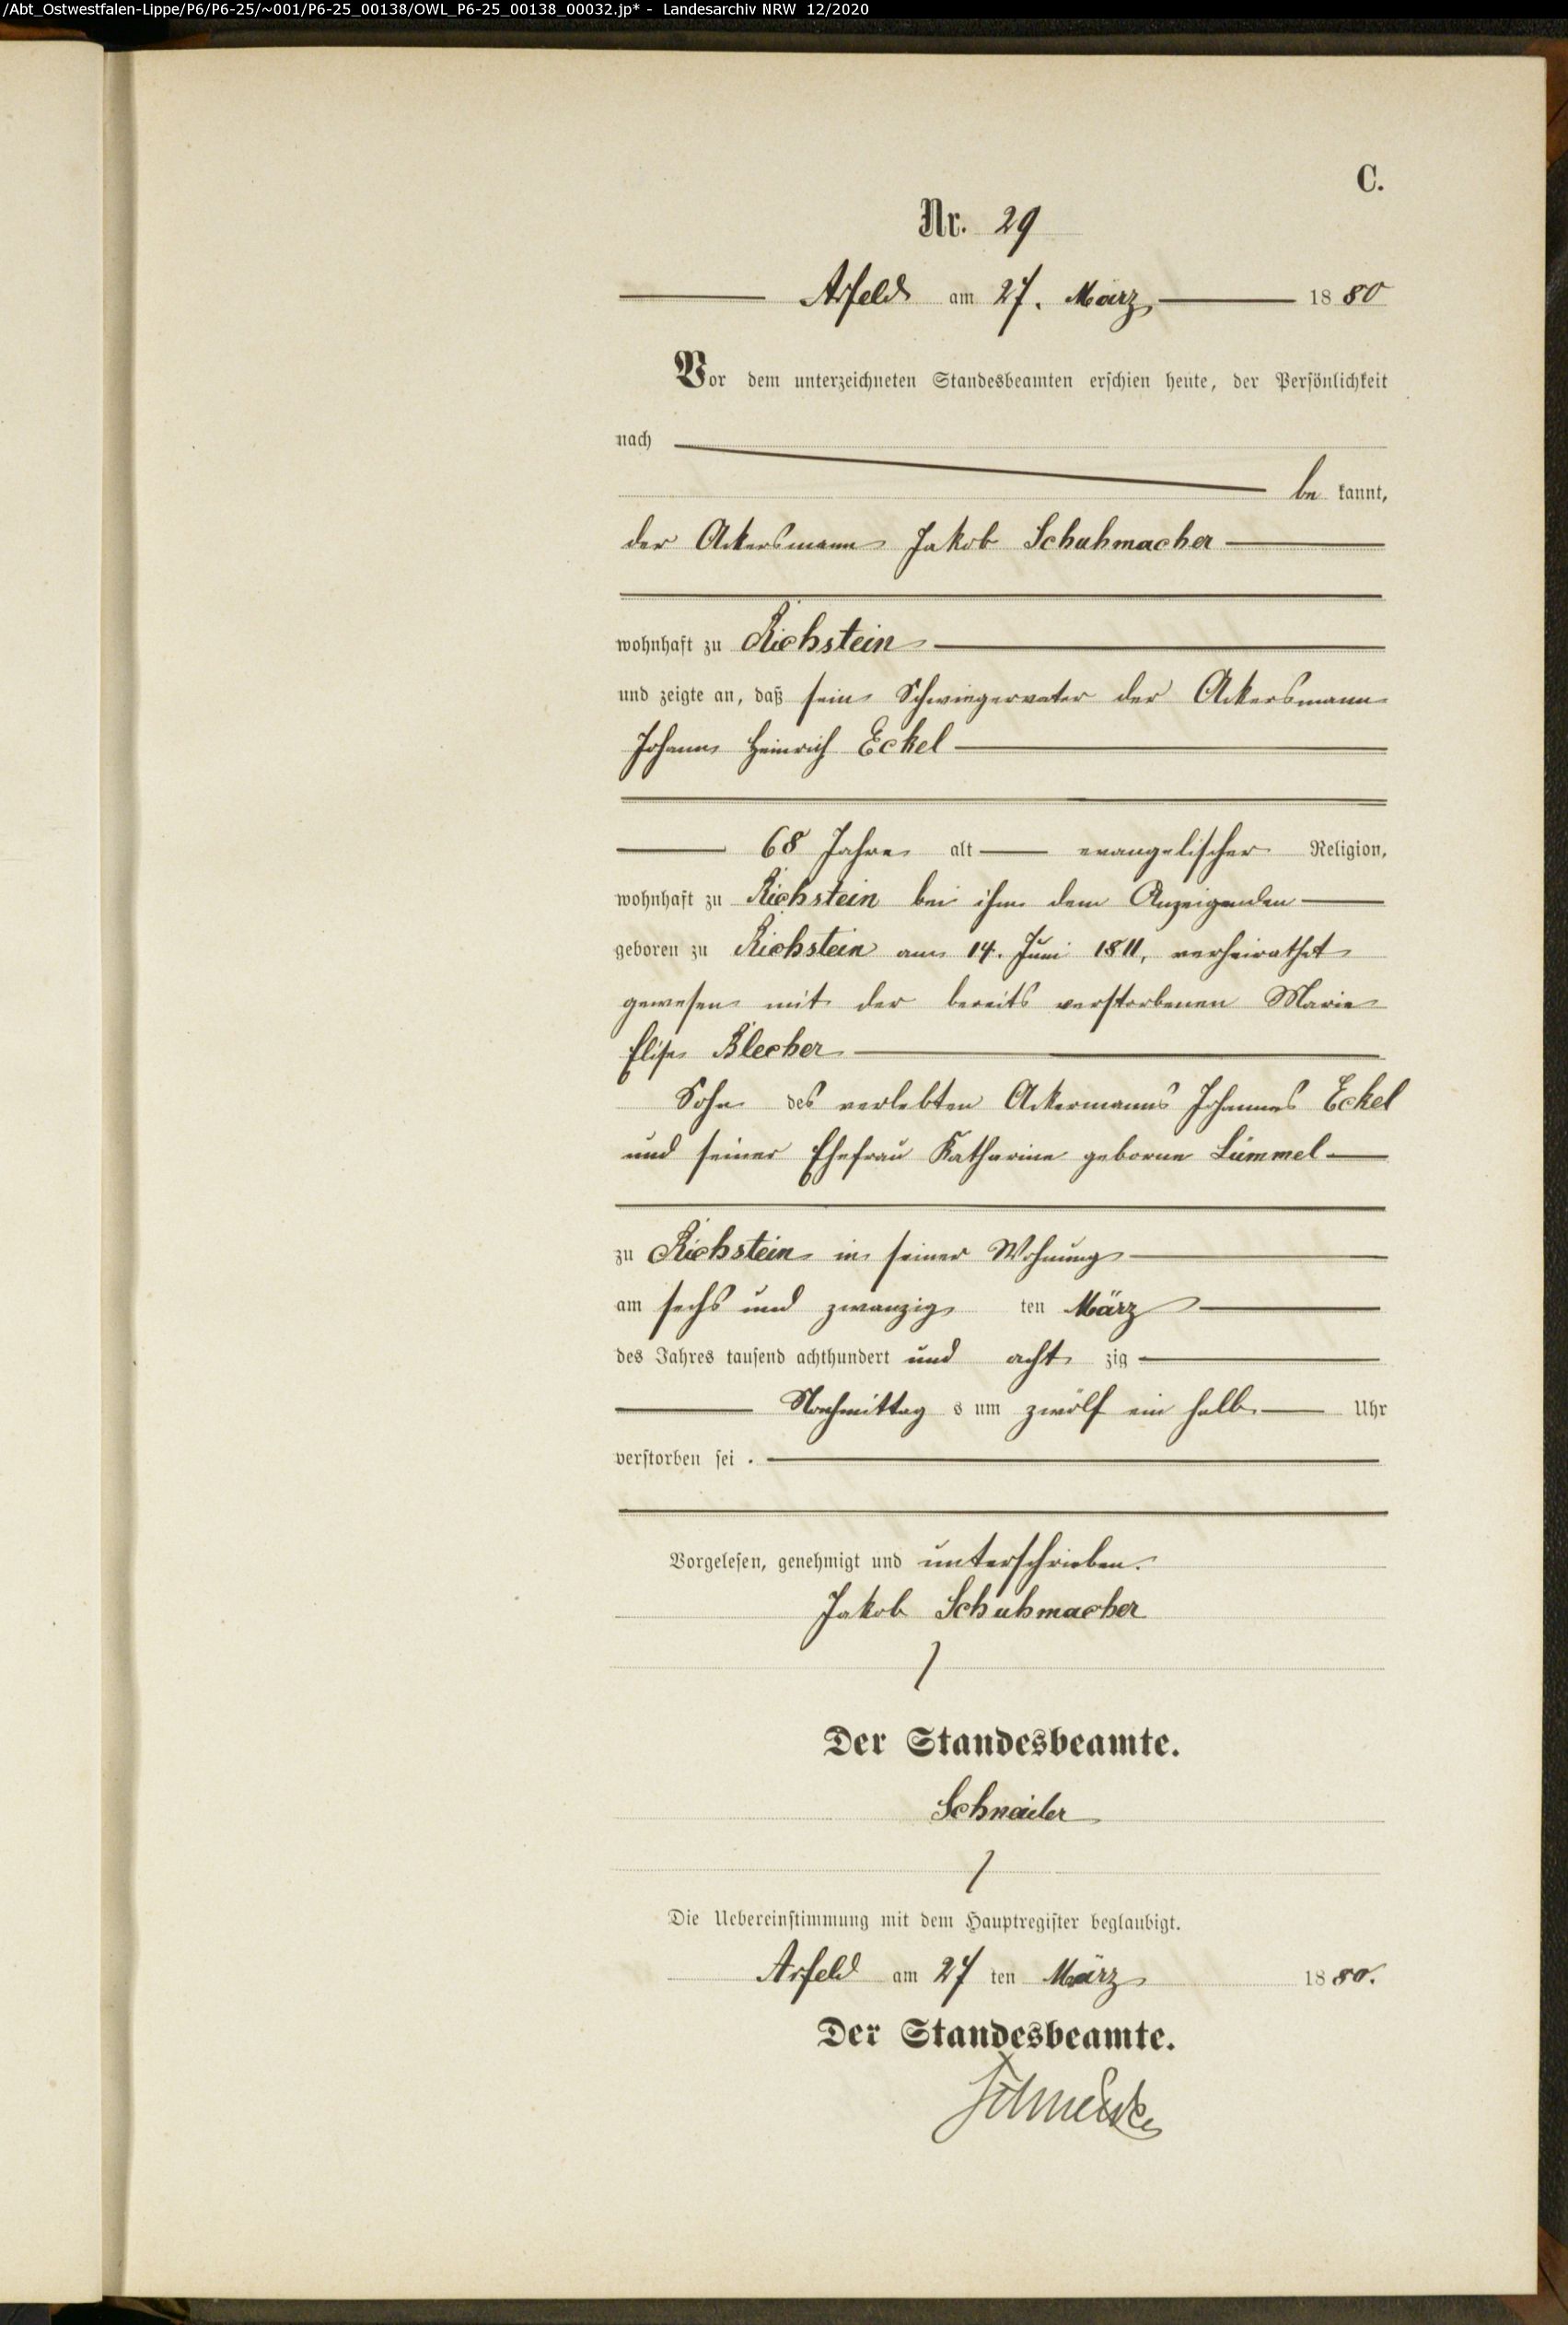 /Abt_Ostwestfalen-Lippe/P6/P6-25/~001/P6-25_00138/OWL_P6-25_00138_00032.jp* - Landesarchiv NRW 12/2020
C.
Nr. 29
Arfeld am 27. März 1880
Vor dem unterzeichneten Standesbeamten erschien heute, der Persönlichkeit
nach
be kannt,
der Ackersmann Jakob Schuhmacher
wohnhaft zu Richstein
und zeigte an, daß sein Schwiegervater der Ackersmann
Johann Heinrich Eckel
68 Jahre alt evangelischer Religion,
wohnhaft zu Richstein bei ihm dem Anzeigenden
geboren zu Richstein am 14. Juni 1811, verheirathet
gewesen mit der bereits verstorbenen Marie
Elise Blecher
Sohn des verlebten Ackermanns Johannes Eckel
und seiner Ehefrau Katharine geborne Lümmel
zu Richstein in seiner Wohnung
am sechs und zwanzig ten März
des Jahres tausend achthundert und acht zig
Nachmittag s um zwölf ein halb Uhr
verstorben sei .
Vorgelesen, genehmigt und unterschrieben.
Jakob Schuhmacher
Der Standesbeamte.
Schneider
Die Uebereinstimmung mit dem Hauptregister beglaubigt.
Arfeld am 27 ten März 1880.
Der Standesbeamte.
Schneider